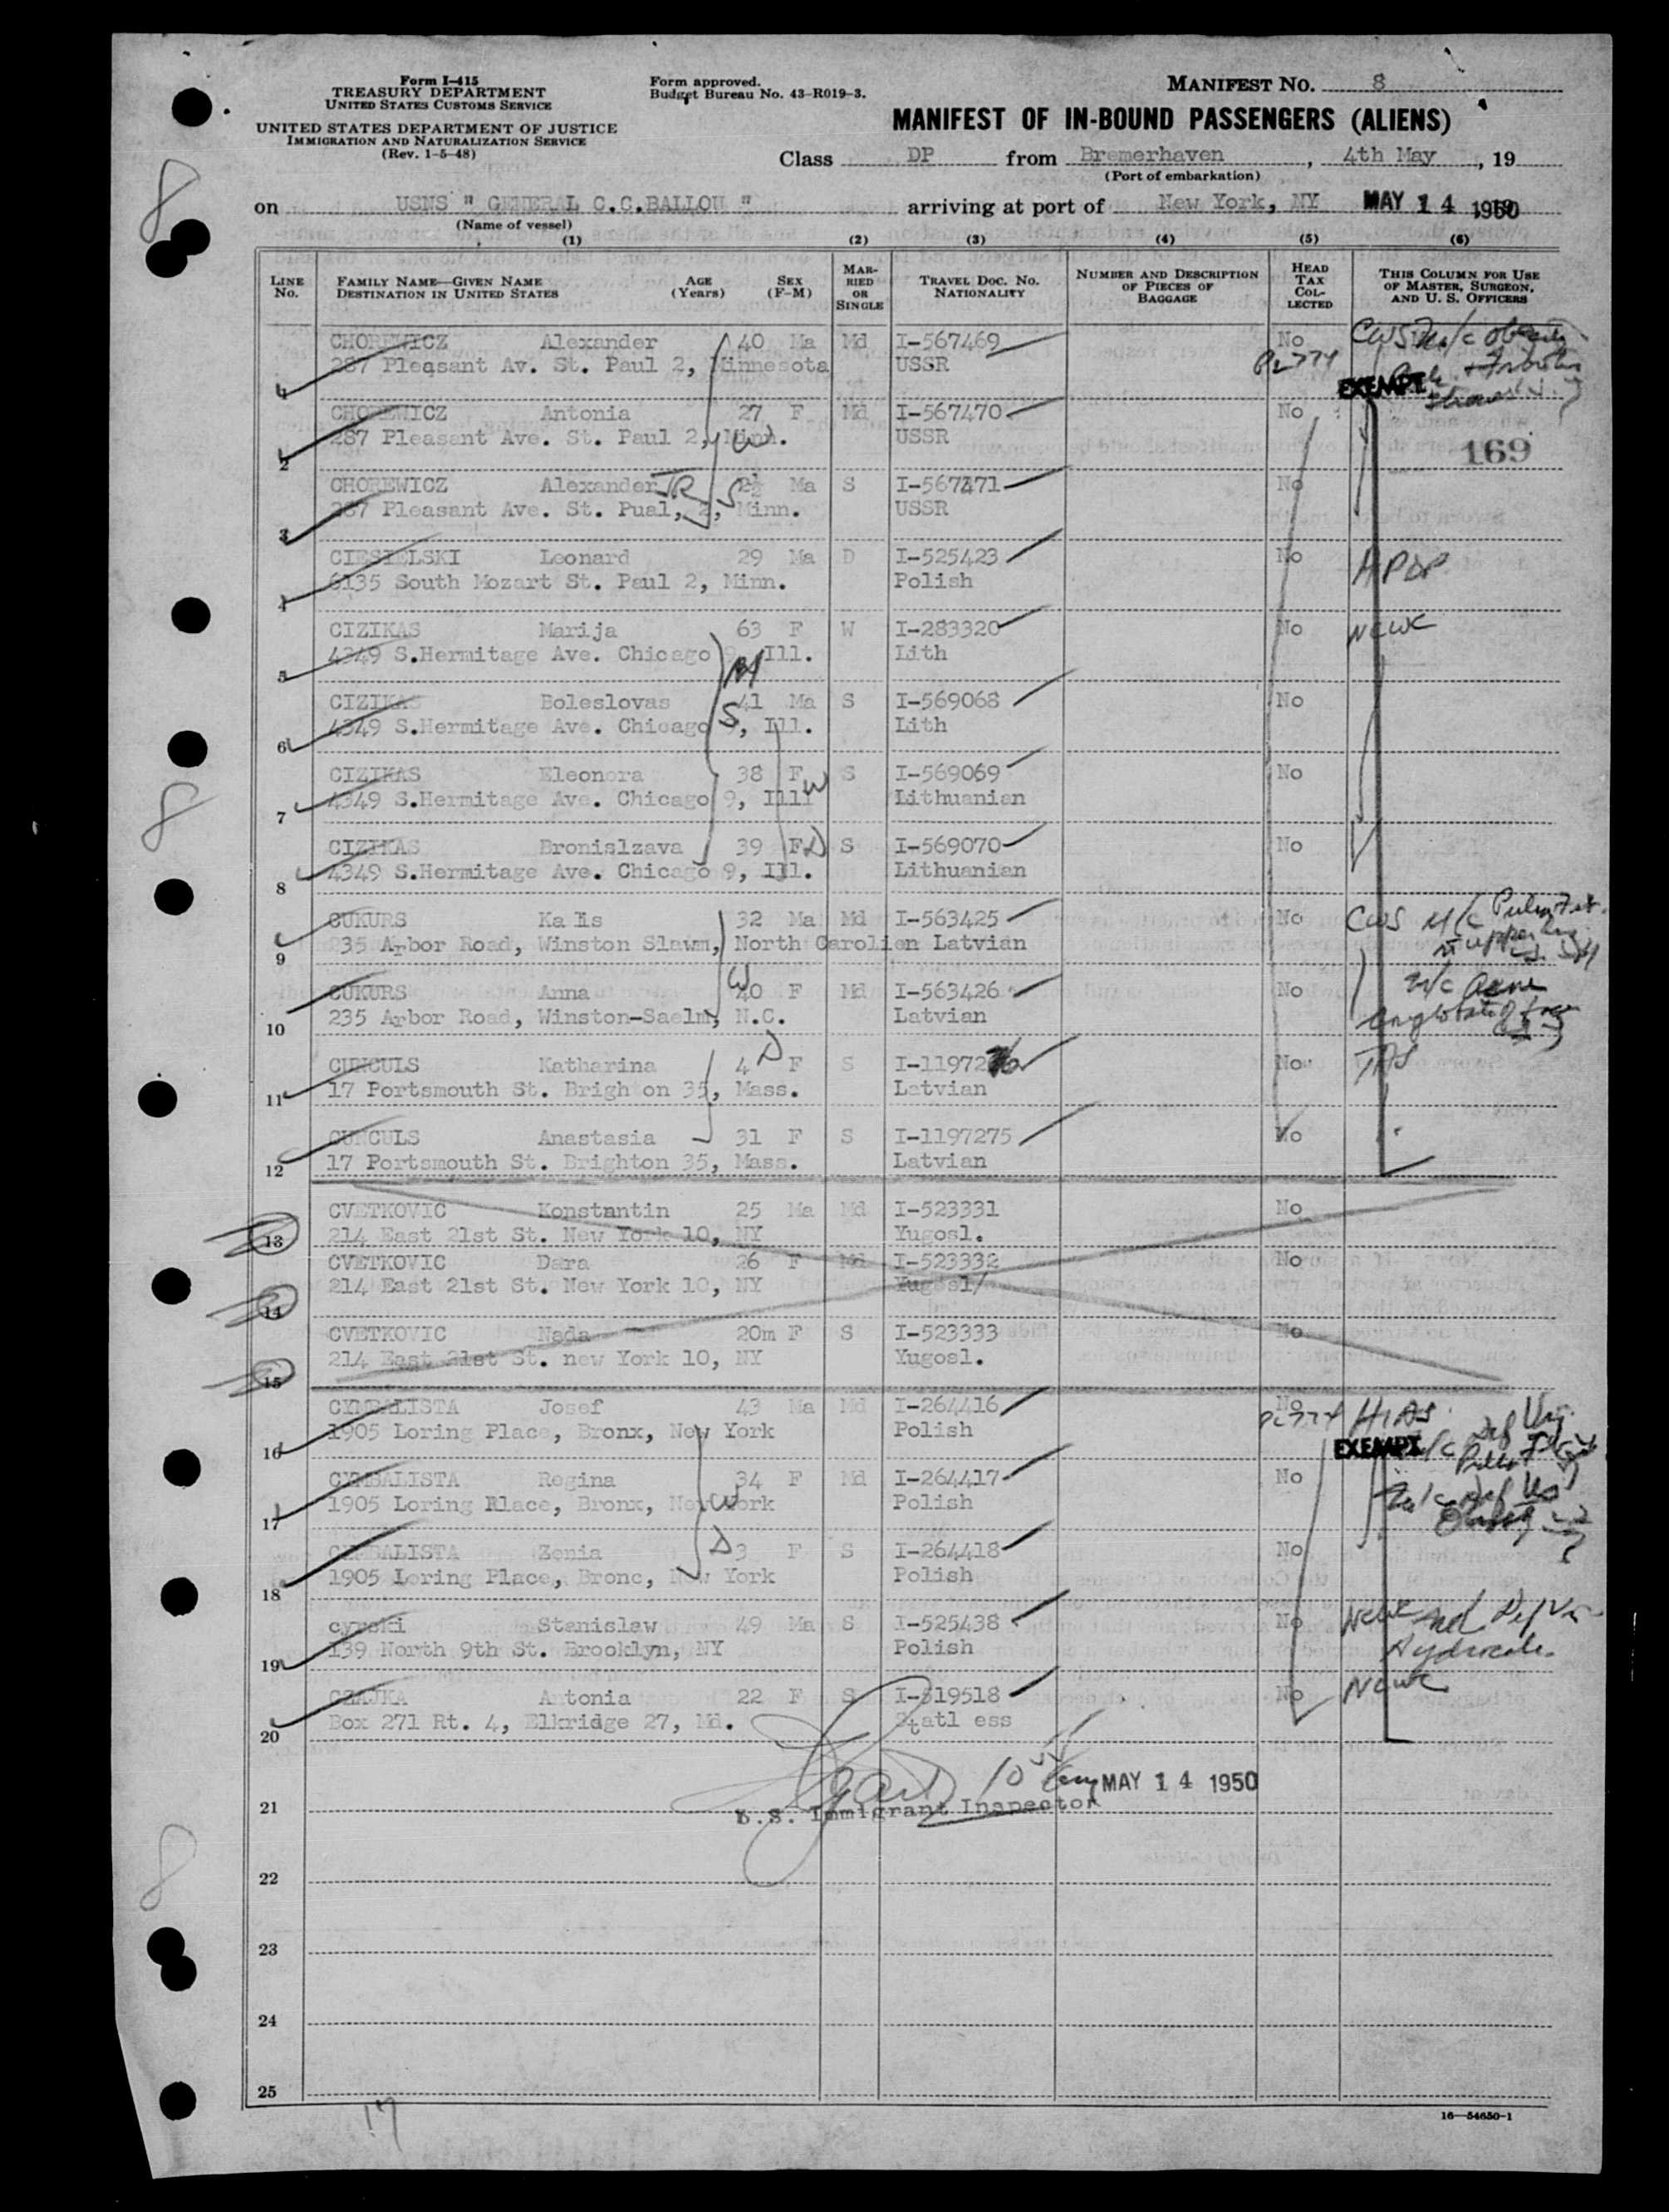 Form I-415
TREASURY DEPARTMENT
UNITED STATES CUSTOMS SERVICE
UNITED STATES DEPARTMENT OF JUSTICE
IMMIGRATION AND NATURALIZATION SERVICE
(Rev. 1-5-48)
Form approved.
Budget Bureau No. 43-R019-3.
MANIFEST NO. 8
MANIFEST OF IN-BOUND PASSENGERS (ALIENS)
Class DP from Bremerhaven, 4th May, 19
(Port of embarkation)
on USNS " GENERAL C.C.BALLOU " arriving at port of New York, NY MAY 14 1950
(Name of vessel)
(1) (2) (3) (4) (5) (6)
LINE No. FAMILY NAME—GIVEN NAME DESTINATION IN UNITED STATES AGE (Years) SEX (F-M) MARRIED OR SINGLE TRAVEL DOC. NO. NATIONALITY NUMBER AND DESCRIPTION OF PIECES OF BAGGAGE HEAD TAX COLLECTED THIS COLUMN FOR USE OF MASTER, SURGEON, AND U. S. OFFICERS
CHOREWICZ Alexander 40 Ma Md I-567469 No CWS
1 287 Pleasant Av. St. Paul 2, Minnesota USSR PL774 EXEMPT
CHOREWICZ Antonia 27 F Md I-567470 No
2 287 Pleasant Ave. St. Paul 2, Minn. W USSR 169
CHOREWICZ Alexander JR S 2½ Ma S I-567471 No
3 287 Pleasant Ave. St. Pual, 2, Minn. USSR
CIESIELSKI Leonard 29 Ma D I-525423 No APDP
4 6135 South Mozart St. Paul 2, Minn. Polish
CIZIKAS Marija 63 F W I-283320 No NCWC
5 4349 S.Hermitage Ave. Chicago 9, Ill. M Lith
CIZIKAS Boleslovas 41 Ma S I-569068 No
6 4349 S.Hermitage Ave. Chicago 9, Ill. S Lith
CIZIKAS Eleonora 38 F S I-569069 No
7 4349 S.Hermitage Ave. Chicago 9, Ill W Lithuanian
CIZIKAS Bronislzava 39 F D S I-569070 No
8 4349 S.Hermitage Ave. Chicago 9, Ill. Lithuanian
CUKURS Ka lis 32 Ma Md I-563425 No CWS M/c
9 235 Arbor Road, Winston Slawm, North Carolien Latvian upper
CUKURS Anna W 40 F Md I-563426 No M/c Acne
10 235 Arbor Road, Winston-Saelm, N.C. Latvian
CUNCULS Katharina 4 D F S I-11972 76 No TAS
11 17 Portsmouth St. Brigh on 35, Mass. Latvian
CUNCULS Anastasia 31 F S I-1197275 No
12 17 Portsmouth St. Brighton 35, Mass. Latvian
CVETKOVIC Konstantin 25 Ma Md I-523331 No
13 214 East 21st St. New York 10, NY Yugosl.
CVETKOVIC Dara 26 F Md I-523332 No
14 214 East 21st St. New York 10, NY Yugosl/
CVETKOVIC Nada 20m F S I-523333 No
15 214 East 21st St. new York 10, NY Yugosl.
CYMBALISTA Josef 43 Ma Md I-264416 No HIAS
16 1905 Loring Place, Bronx, New York Polish PL774 EXEMPT
CYMBALISTA Regina 34 F Md I-264417 No
17 1905 Loring Rlace, Bronx, New York W Polish
CYMBALISTA Zenia D 3 F S I-264418 No
18 1905 Loring Place, Bronc, New York Polish
cypski Stanislaw 49 Ma S I-525438 No NCWC
19 139 North 9th St. Brooklyn, NY Polish Hydrocele
CZAJKA Antonia 22 F S I-519518 No NCWC
20 Box 271 Rt. 4, Elkridge 27, Md. Statl ess
MAY 14 1950
21 U.S. Immigrant Inspector
22
23
24
25
16—54650-1
17
8
8
8